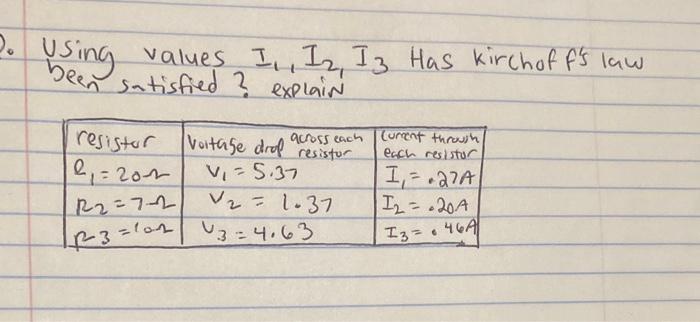 2. Using values I1, I2, I3 Has Kirchoff's law
been satisfied? explain
resistor | Voltage drop across each resistor | Current through each resistor
R1=20Ω | V1=5.37 | I1=.27A
R2=7Ω | V2=1.37 | I2=.20A
R3=10Ω | V3=4.63 | I3=.46A